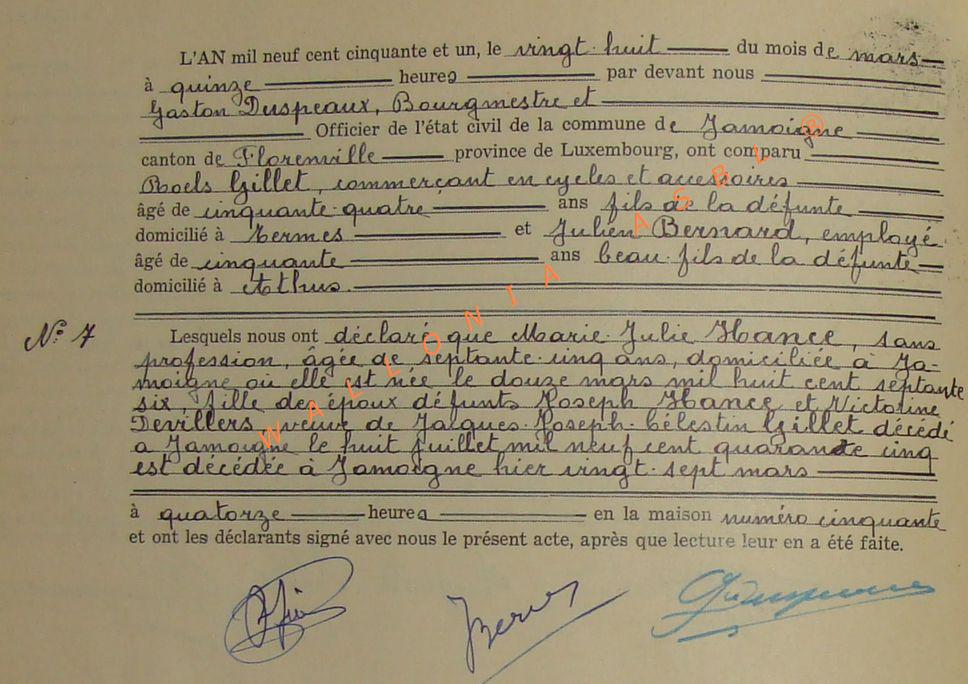 L'AN mil neuf cent cinquante et un, le vingt-huit du mois de mars
à quinze heures par devant nous
Gaston Duspeaux, Bourgmestre et
Officier de l'état civil de la commune de Jamoigne
canton de Florenville province de Luxembourg, ont comparu
Roels Gillet, commerçant en cycles et accessoires
âgé de cinquante-quatre ans fils de la défunte
domicilié à Termes et Julien Bernard, employé
âgé de cinquante ans beau-fils de la défunte
domicilié à Athus.
N° 7 Lesquels nous ont déclaré que Marie-Julie Hance, sans
profession, âgée de septante-cinq ans, domiciliée à Ja-
moigne où elle est née le douze mars mil huit cent septante
six, fille des époux défunts Joseph Hance et Victorine
Devillers, veuve de Jacques-Joseph-Célestin Gillet décédé
a Jamoigne le huit juillet mil neuf cent quarante cinq
est décédée à Jamoigne hier vingt-sept mars
à quatorze heures en la maison numéro cinquante
et ont les déclarants signé avec nous le présent acte, après que lecture leur en a été faite.
WALLONIA ASBL ®